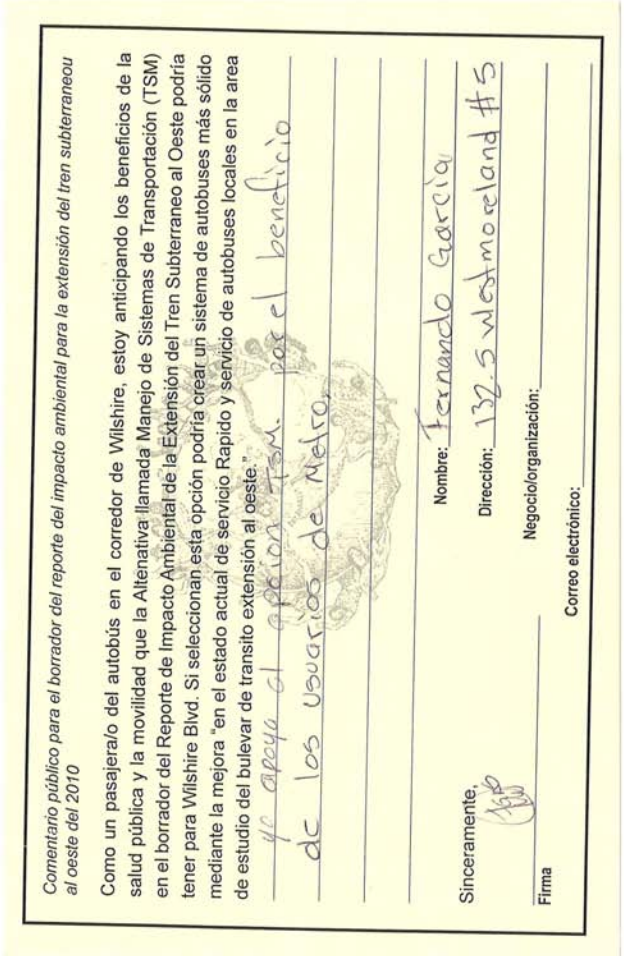 Comentario público para el borrador del reporte del impacto ambiental para la extensión del tren subterraneou
al oeste del 2010
Como un pasajera/o del autobús en el corredor de Wilshire, estoy anticipando los beneficios de la
salud pública y la movilidad que la Altenativa llamada Manejo de Sistemas de Transportación (TSM)
en el borrador del Reporte de Impacto Ambiental de la Extensión del Tren Subterraneo al Oeste podría
tener para Wilshire Blvd. Si seleccionan esta opción podría crear un sistema de autobuses más sólido
mediante la mejora “en el estado actual de servicio Rapido y servicio de autobuses locales en la area
de estudio del bulevar de transito extensión al oeste.”
yo apoyo al apcion TSM. por el beneficio
de los usuarios de Metro.
Sinceramente,
Nombre: Fernando Garcia
Dirección: 132. S Westmoreland #5
Firma
Negocio/organización:
Correo electrónico: